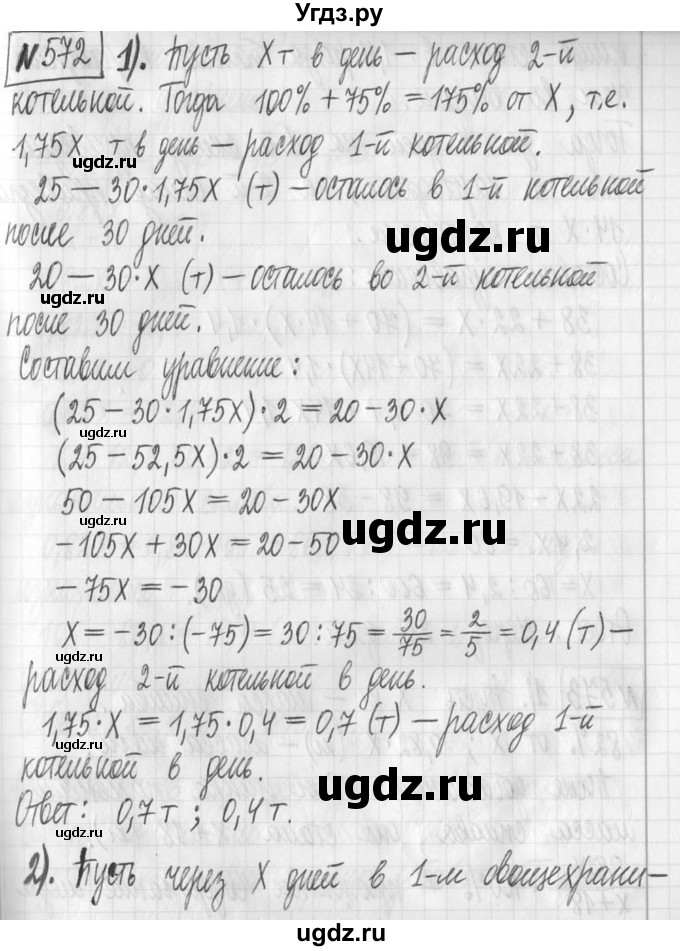 Угдз.ру
№572 1). Пусть х т в день – расход 2-й
котельной. Тогда 100% + 75% = 175% от х, т.е.
1,75х т в день – расход 1-й котельной.
ugdz.ru
25 – 30·1,75х (т) – осталось в 1-й котельной
после 30 дней.
ugdz.ru
20 – 30·х (т) – осталось во 2-й котельной
ugdz.ru
после 30 дней.
Составим уравнение:
(25 – 30·1,75х)·2 = 20 – 30·х
ugdz.ru
(25 – 52,5х)·2 = 20 – 30·х
50 – 105х = 20 – 30х
ugdz.ru
-105х + 30х = 20 – 50
ugdz.ru
-75х = -30
х = -30 : (-75) = 30 : 75 = 30/75 = 2/5 = 0,4 (т) –
ugdz.ru
расход 2-й котельной в день.
1,75·х = 1,75·0,4 = 0,7 (т) – расход 1-й
ugdz.ru
котельной в день.
ugdz.ru
Ответ: 0,7 т ; 0,4 т.
ugdz.ru
2). Пусть через х дней в 1-м овощехрани-